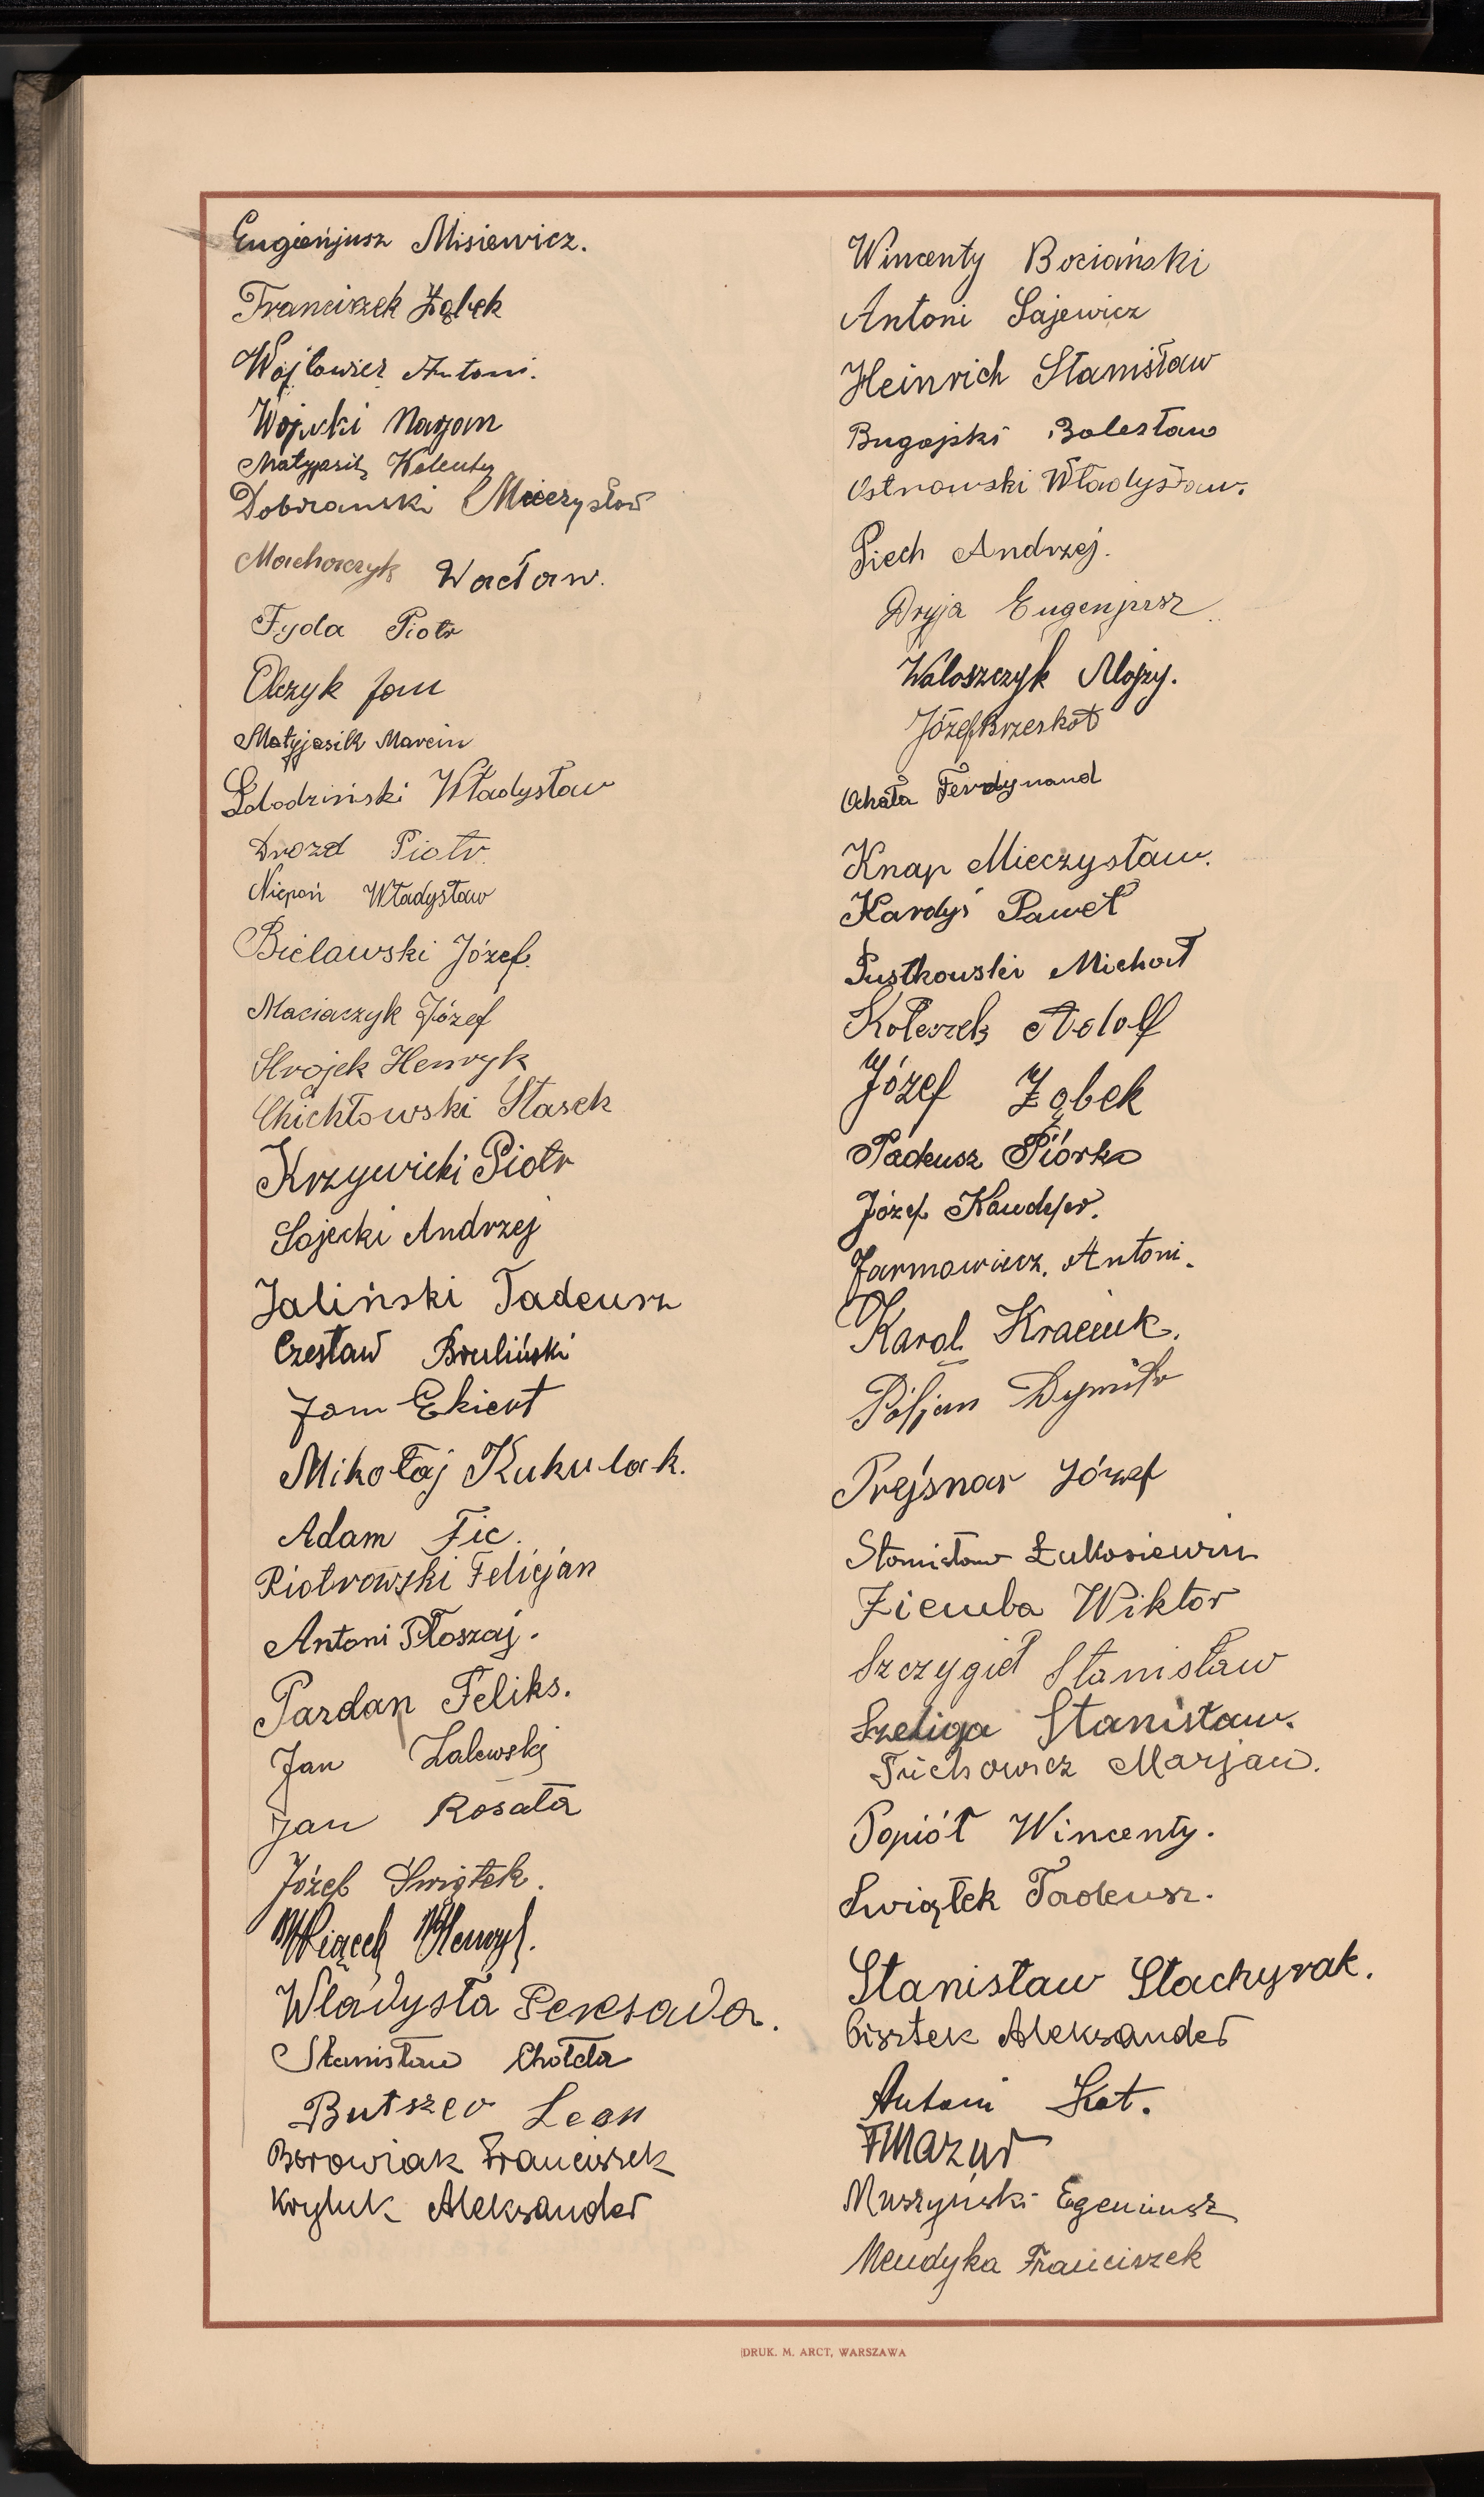 Eugieńjusz Misiewicz.
Franciszek Ząbek
Wójtowicz Antoni.
Wójcki Maryan
Matyjasik Walenty
Dobrzanski Mieczysław
Macharczyk Wacław.
Fyda Piotr
Olczyk Jan
Matyjasik Marcin
Władysław
Drozd Piotr.
Niepoń Władysław
Bielawski Józef.
Maciaczyk Józef
Strojek Henryk
Chichłowski Stasek
Krzywicki Piotr
Sajecki Andrzej
Jaliński Tadeusz
Czesław Bruliński
Jan Ekiert
Mikołaj Kukulak.
Adam Fic.
Piotrowski Felicjan
Antoni Płoszaj.
Pardan Feliks.
Jan Zalewski
Jan Rosała
Józef Swiątek.
Wiącek Henryk.
Władysła Peksada.
Stanisław Chołda
Butszer Leon
Borowiak Franciszek
Kryluk Aleksander
Wincenty Bociański
Antoni Sajewicz
Heinrich Stanisław
Bugajski Bolesław
Ostrowski Władysław.
Piech Andrzej.
Dryja Eugenjusz
Waloszczyk Alojzy.
Józef Brzeskot
Ochała Ferdynand
Knap Mieczysław.
Kardyś Paweł
Pustkowski Michał
Kołeczek Adolf
Józef Ząbek
Tadeusz Piórko
Józef
Jarmowicz. Antoni.
Karol Kraciuk.
Dymitr
Prejsnar Józef
Stanisław Łukasiewicz
Ziemba Wiktor
Szczygieł Stanisław
Szeliga Stanisław.
Marjan.
Popiół Wincenty.
Swiątek Tadeusz.
Stanisław Stachyrak.
Cisztek Aleksander
Antoni Kot.
F Mazur
Muszyński Egeniusz
Mendyka Franciszek
DRUK. M. ARCT, WARSZAWA